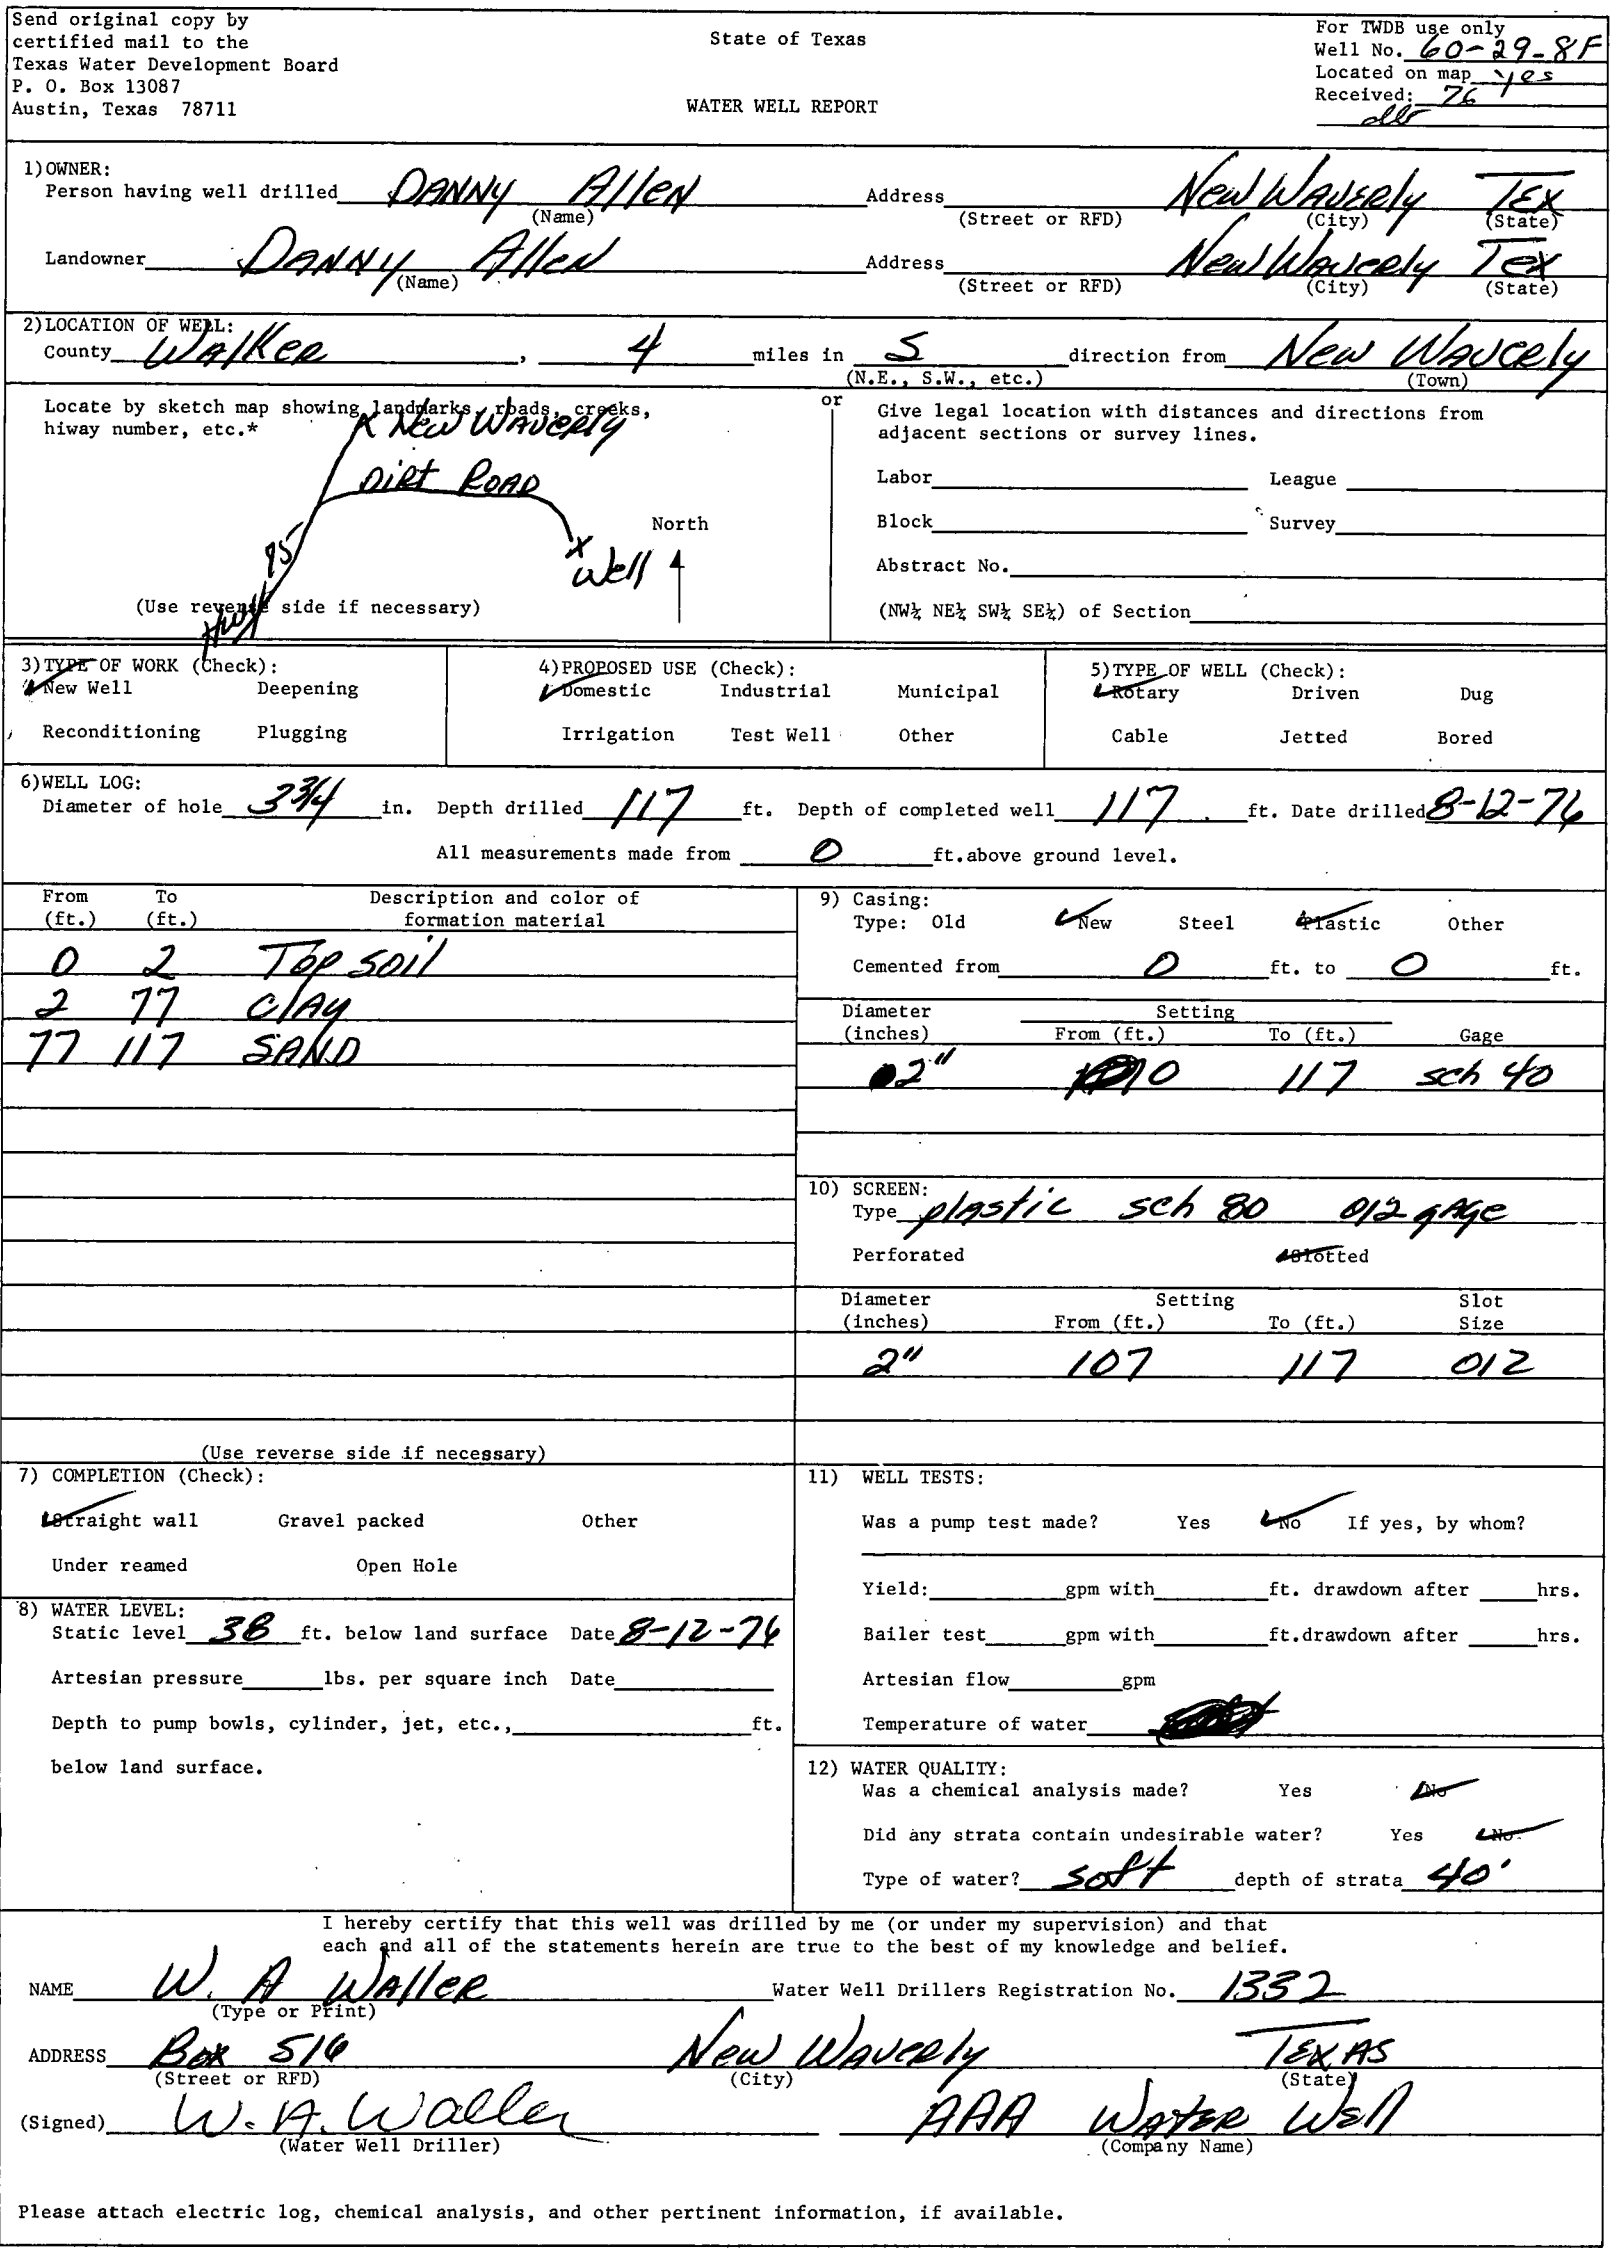 Send original copy by
certified mail to the
Texas Water Development Board
P. O. Box 13087
Austin, Texas 78711
State of Texas
WATER WELL REPORT
For TWDB use only
Well No. 60-29-8F
Located on map yes
Received: 76
1)OWNER:
Person having well drilled DANNY Allen Address New Waverly TEX
(Name) (Street or RFD) (City) (State)
Landowner DANNY Allen Address New Waverly Tex
(Name) (Street or RFD) (City) (State)
2)LOCATION OF WELL:
County Walker, 4 miles in S direction from New Waverly
(N.E., S.W., etc.) (Town)
Locate by sketch map showing landmarks, roads, creeks,
hiway number, etc.*
New Waverly
Dirt Road
North
Well
(Use reverse side if necessary)
or
Give legal location with distances and directions from
adjacent sections or survey lines.
Labor League
Block Survey
Abstract No.
(NW¼ NE¼ SW¼ SE¼) of Section
3)TYPE OF WORK (Check):
New Well Deepening
Reconditioning Plugging
4)PROPOSED USE (Check):
Domestic Industrial Municipal
Irrigation Test Well Other
5)TYPE OF WELL (Check):
Rotary Driven Dug
Cable Jetted Bored
6)WELL LOG:
Diameter of hole 3 3/4 in. Depth drilled 117 ft. Depth of completed well 117 ft. Date drilled 8-12-76
All measurements made from 0 ft.above ground level.
From To Description and color of
(ft.) (ft.) formation material
0 2 Top soil
2 77 Clay
77 117 SAND
(Use reverse side if necessary)
9) Casing:
Type: Old New Steel Plastic Other
Cemented from 0 ft. to 0 ft.
Diameter Setting
(inches) From (ft.) To (ft.) Gage
2" 0 117 sch 40
10) SCREEN:
Type plastic sch 80 012 gage
Perforated Slotted
Diameter Setting Slot
(inches) From (ft.) To (ft.) Size
2" 107 117 012
7) COMPLETION (Check):
Straight wall Gravel packed Other
Under reamed Open Hole
8) WATER LEVEL:
Static level 38 ft. below land surface Date 8-12-76
Artesian pressure lbs. per square inch Date
Depth to pump bowls, cylinder, jet, etc., ft.
below land surface.
11) WELL TESTS:
Was a pump test made? Yes No If yes, by whom?
Yield: gpm with ft. drawdown after hrs.
Bailer test gpm with ft.drawdown after hrs.
Artesian flow gpm
Temperature of water
12) WATER QUALITY:
Was a chemical analysis made? Yes No
Did any strata contain undesirable water? Yes No
Type of water? soft depth of strata 40'
I hereby certify that this well was drilled by me (or under my supervision) and that
each and all of the statements herein are true to the best of my knowledge and belief.
NAME W. A Waller Water Well Drillers Registration No. 1332
(Type or Print)
ADDRESS Box 516 New Waverly TEXAS
(Street or RFD) (City) (State)
(Signed) W. A. Waller AAA Water Well
(Water Well Driller) (Company Name)
Please attach electric log, chemical analysis, and other pertinent information, if available.